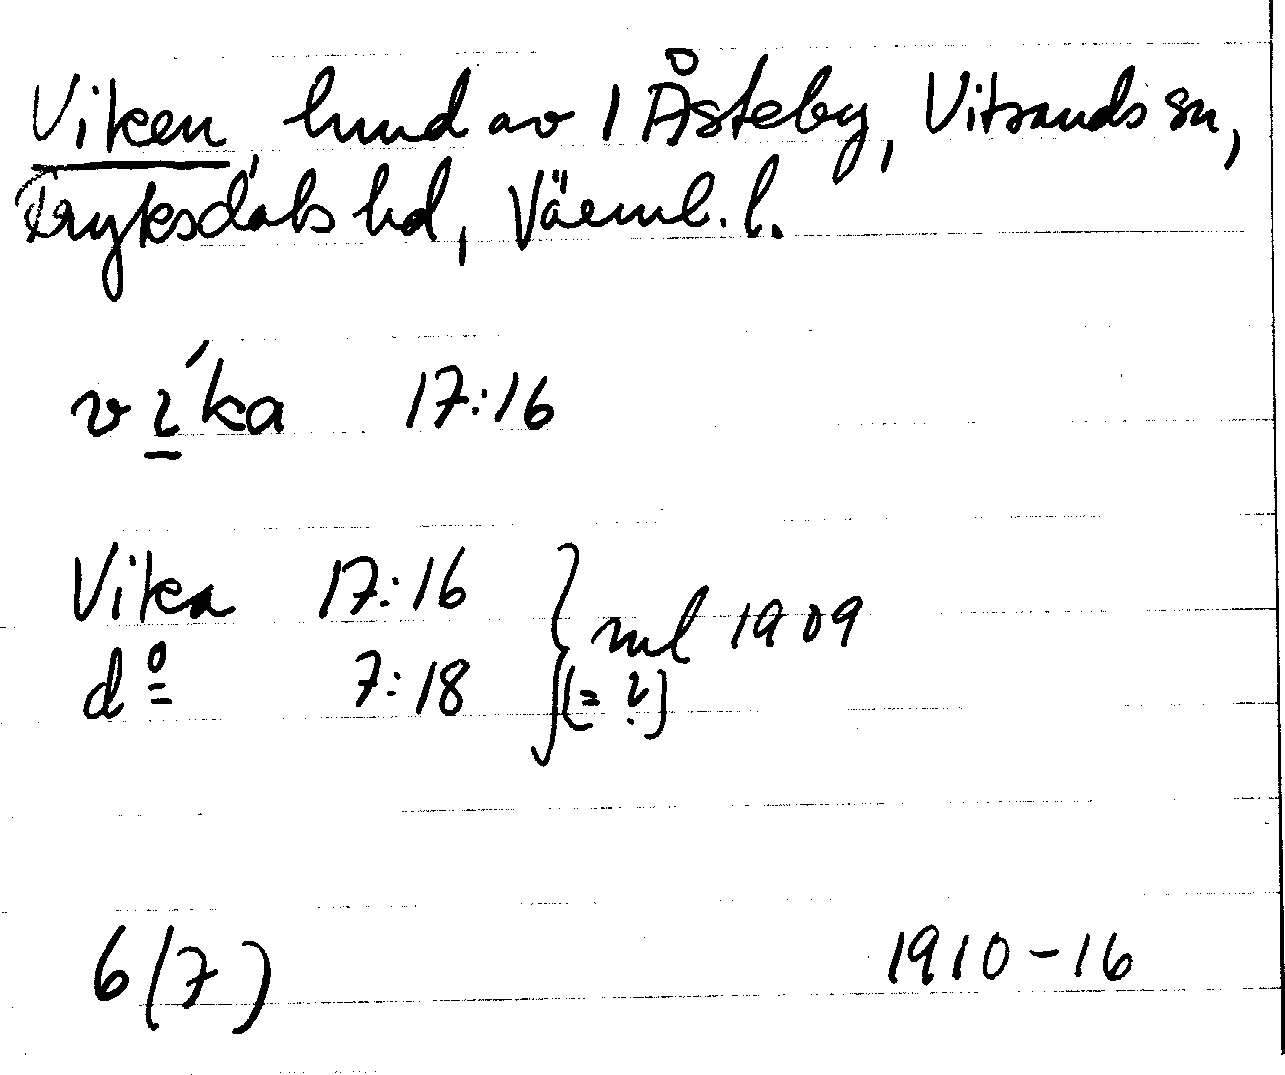 Viken, hmd av 1 Åsteby, Vitsands sn,
Fryksdals hd, Värml. l.
víka 17:16
Vika 17:16
dº 7:18 } ml 1909
(= ?)
6(7) 1910-16